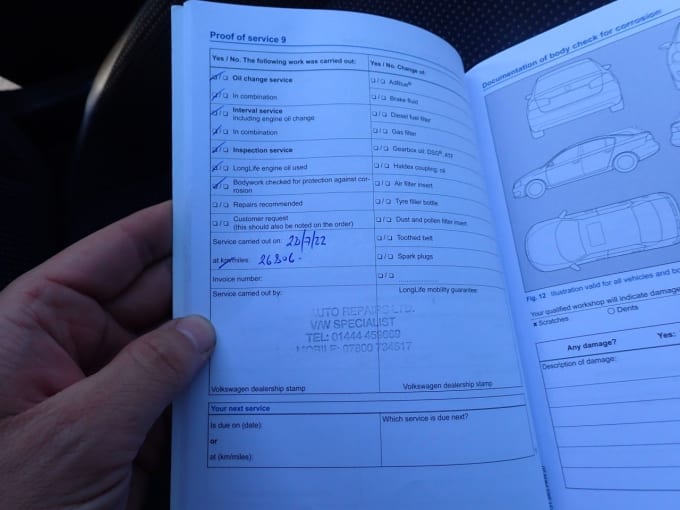 Proof of service 9
Yes / No. The following work was carried out:
Oil change service
In combination
Interval service
including engine oil change
In combination
Inspection service
LongLife engine oil used
Bodywork checked for protection against cor-
rosion
Repairs recommended
Customer request
(this should also be noted on the order)
Service carried out on: 28/7/22
at km/miles: 26806.
Invoice number:
Service carried out by:
Yes / No. Change of:
AdBlue®
Brake fluid
Diesel fuel filter
Gas filter
Gearbox oil: DSG®, ATF
Haldex coupling: oil
Air filter insert
Tyre filler bottle
Dust and pollen filter insert
Toothed belt
Spark plugs
LongLife mobility guarantee:
AUTO REPAIRS LTD.
V/W SPECIALIST
TEL: 01444
MOBILE: 07800
Volkswagen dealership stamp
Volkswagen dealership stamp
Your next service
Is due on (date):
or
at (km/miles):
Which service is due next?
Documentation of body check for corrosion:
Fig. 12 Illustration valid for all vehicles and
Your qualified workshop will indicate damage
x Scratches
O Dents
Any damage?
Yes:
Description of damage: